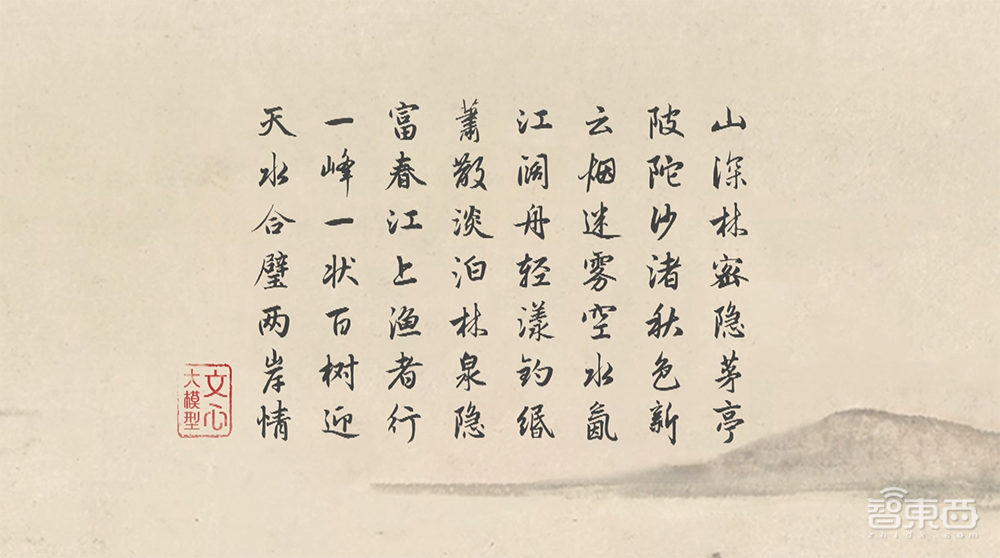 山深林密隐茅亭
陂陀沙渚秋色新
云烟迷雾空水氤
江阔舟轻漾钓缗
萧散淡泊林泉隐
富春江上渔者行
一峰一状百树迎
天水合璧两岸情
文心
大模型
智東西
zhidx.com